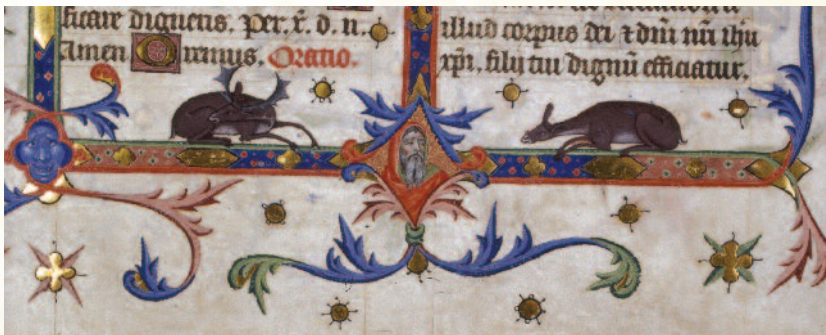 ficare digneris. Per. x̄. d. n.
Amen Oremus. Oratio.
illud corpus dei ⁊ dñi nr̄i ihu
xp̄i, filij tui dignū efficiatur,